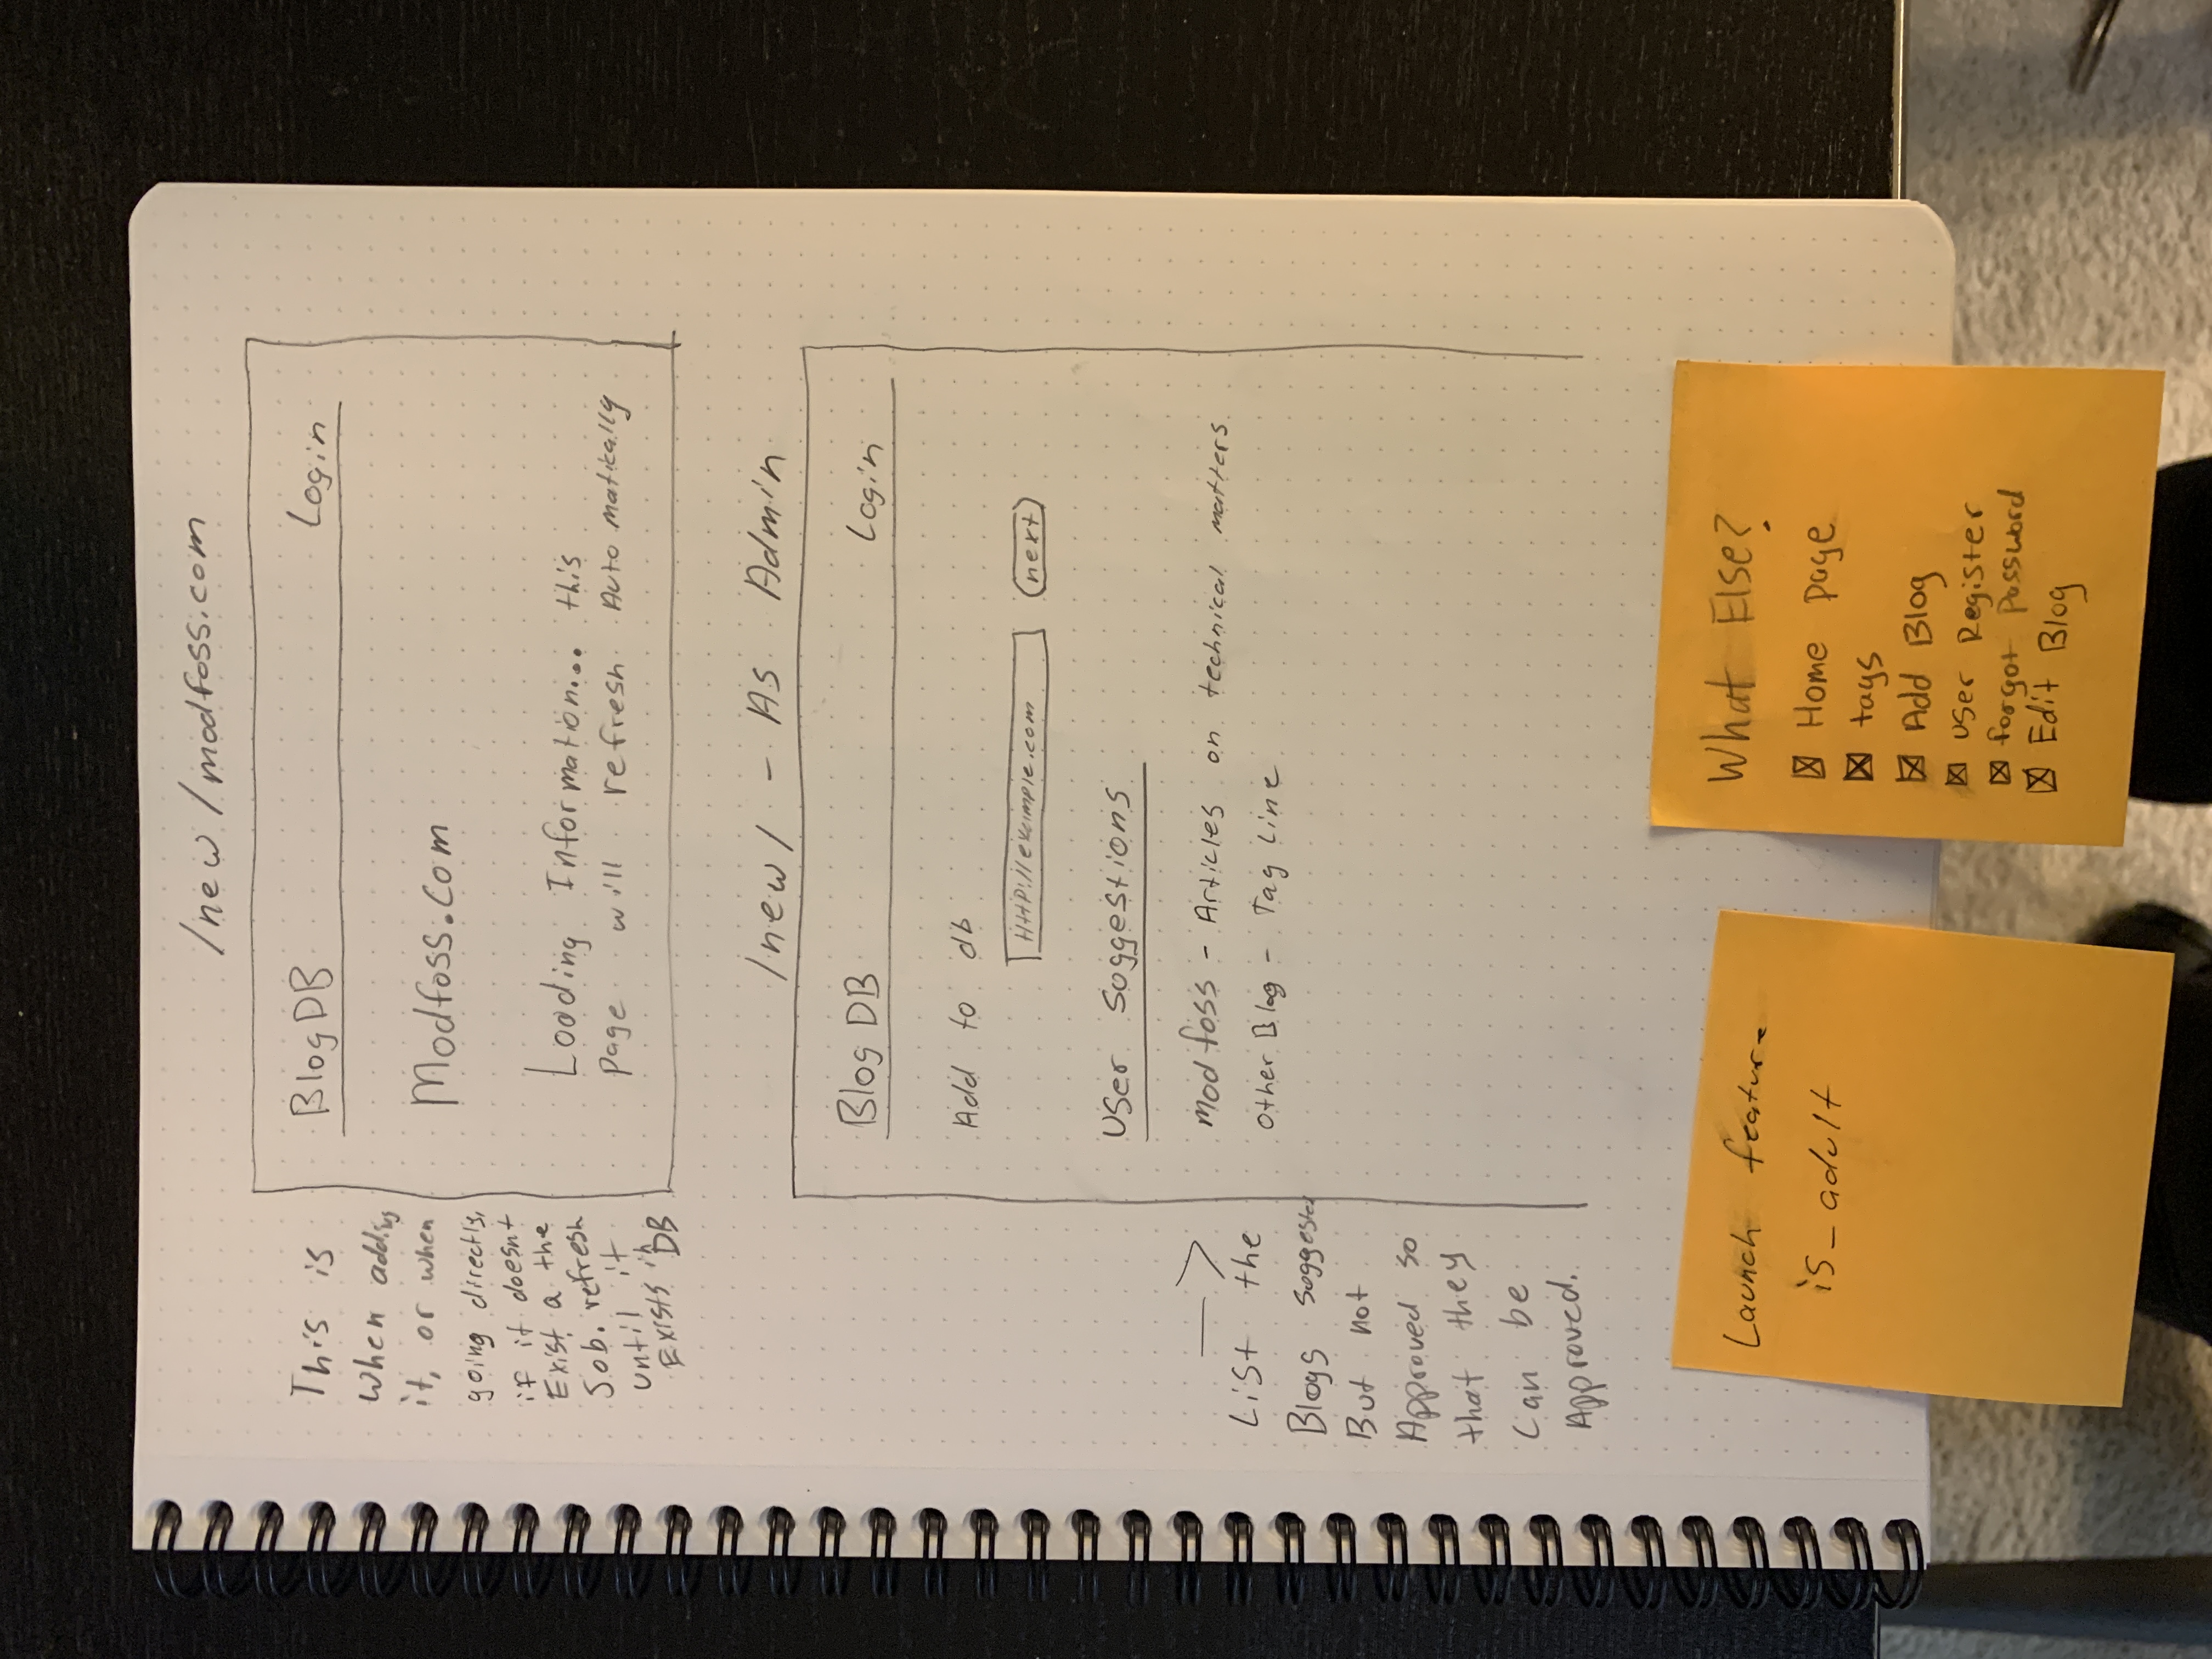 /new/modfoss.com
BlogDB Login
Modfoss.com
Loading Information... this
page will refresh Automatically
This is
when adding
it, or when
going directly,
if it doesnt
Exist a the
Job. refresh
until it
Exists in DB
/new/ - As Admin
BlogDB Login
Add to db
HttP://example.com next
User Suggestions
modfoss - Articles on technical matters
other Blog - Tag Line
List the
Blogs Suggested
But not
Approved so
that they
can be
Approved.
Launch feature
is_adult
What Else?
Home page
tags
Add Blog
user Register
forgot Password
Edit Blog